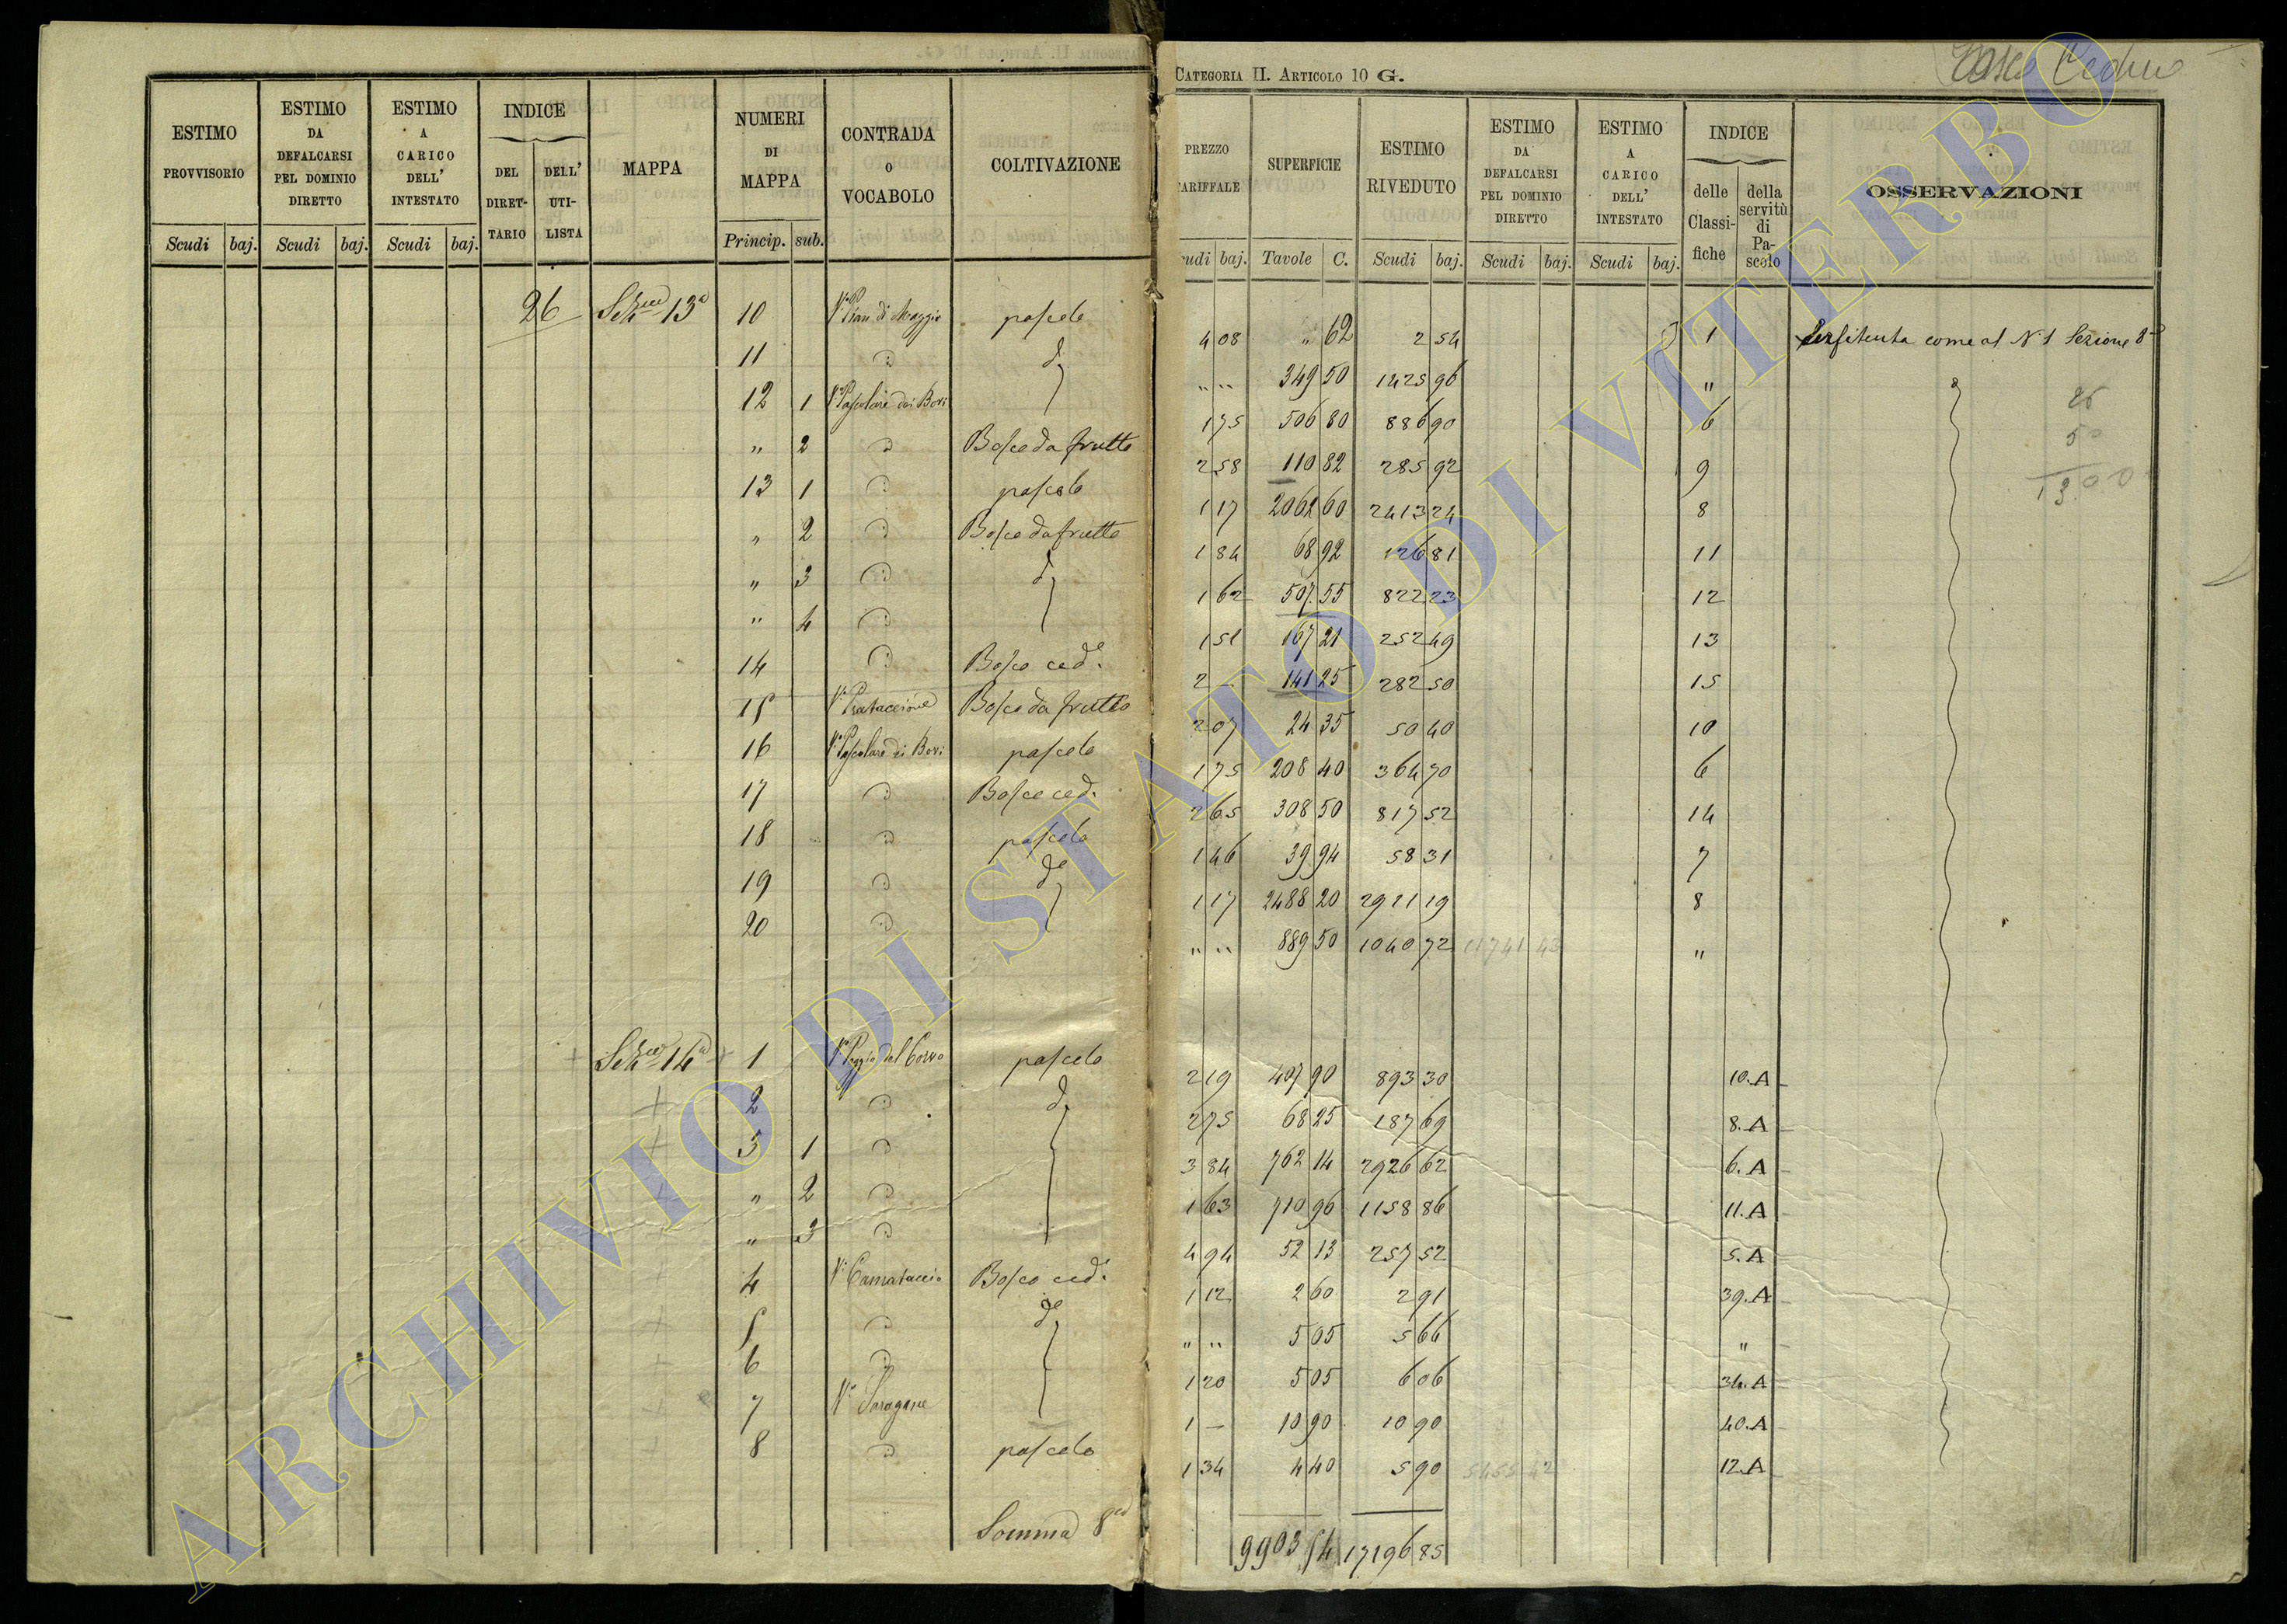 CATEGORIA II. ARTICOLO 10 G.
ESTIMO PROVVISORIO | ESTIMO DA DEFALCARSI PEL DOMINIO DIRETTO | ESTIMO A CARICO DELL' INTESTATO | INDICE | MAPPA | NUMERI DI MAPPA | CONTRADA o VOCABOLO | COLTIVAZIONE | PREZZO TARIFFALE | SUPERFICIE | ESTIMO RIVEDUTO | ESTIMO DA DEFALCARSI PEL DOMINIO DIRETTO | ESTIMO A CARICO DELL' INTESTATO | INDICE | OSSERVAZIONI
DEL DIRETTARIO | DELL' UTILISTA | delle Classifiche | della servitù di Pascolo
Scudi | baj. | Scudi | baj. | Scudi | baj. | Princip. | sub. | udi | baj. | Tavole | C. | Scudi | baj. | Scudi | baj. | Scudi | baj.
26 | 13a | 10 | pascolo | 4 08 | " 62 | 2 54 | 1 | come al N. 1 Sezione 8
11 | d | " " | 349 50 | 1425 96 | "
12 | 1 | Pascolare dei Bovi | 175 | 506 80 | 886 90 | 6
" | 2 | Bosco da frutto | 2 58 | 110 82 | 285 92 | 9
13 | 1 | pascolo | 1 17 | 2062 60 | 2413 24 | 8
" | 2 | Bosco da frutto | 1 84 | 68 92 | 126 81 | 11
" | 3 | d | 1 62 | 507 55 | 822 23 | 12
" | 4 | 1 51 | 167 21 | 252 49 | 13
14 | Bosco ced. | 2 — | 141 25 | 282 50 | 15
15 | Bosco da frutto | 2 07 | 24 35 | 50 40 | 10
16 | Pascolare di Bovi | pascolo | 1 75 | 208 40 | 364 70 | 6
17 | Bosco ced. | 2 65 | 308 50 | 817 52 | 14
18 | pascolo | 1 46 | 39 94 | 58 31 | 7
19 | d | 1 17 | 2488 20 | 2911 19 | 8
20 | " " | 889 50 | 1040 72 | 11741 43 | "
14a | 1 | Poggio del Corvo | pascolo | 2 19 | 407 90 | 893 30 | 10.A
2 | d | 2 75 | 68 25 | 187 69 | 8.A
3 | 1 | 3 84 | 762 14 | 2926 62 | 6.A
" | 2 | 1 63 | 710 96 | 1158 86 | 11.A
" | 3 | 4 94 | 52 13 | 257 52 | 5.A
4 | Bosco ced. | 1 12 | 2 60 | 2 91 | 39.A
5 | d | " " | 5 05 | 5 66 | "
6 | 1 20 | 5 05 | 6 06 | 34.A
7 | 1 — | 10 90 | 10 90 | 40.A
8 | pascolo | 1 34 | 4 40 | 5 90 | 12.A
Somma | 9903 54 | 17196 85
ARCHIVIO DI STATO DI VITERBO